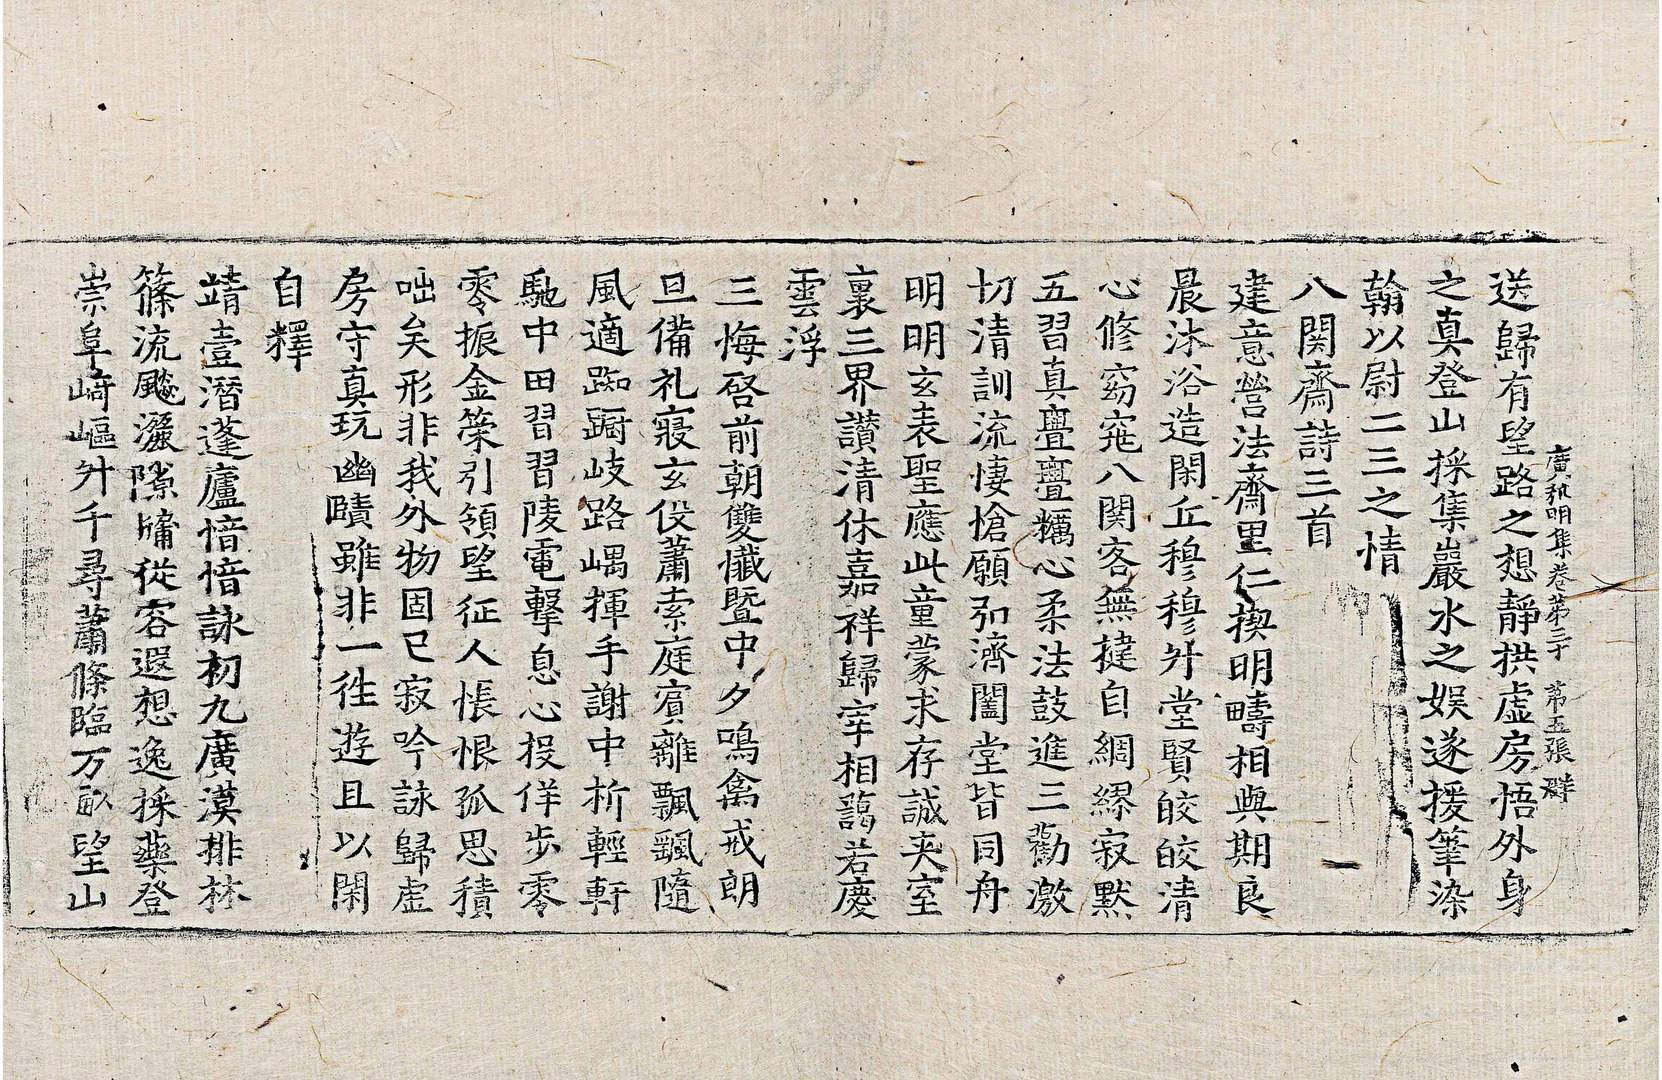 廣弘明集卷第三十　第五張　群
送歸有望路之想靜拱虛房悟外身
之真登山採集巖水之娛遂援筆染
翰以尉二三之情
八関齋詩三首
建意營法齋里仁揳明疇相與期良
晨沐浴造閑丘穆穆升堂賢皎皎清
心修窈窕八関客無揵自綢繆寂默
五習真亹亹勵心柔法鼓進三勸激
切清訓流悽愴願弘濟闔堂皆同舟
明明玄表聖應此童蒙求存誠夾室
裏三界讃清休嘉祥歸宰相藹若慶
雲浮
三悔啓前朝雙懺暨中夕鳴禽戒朗
旦備礼寢玄伇蕭索庭賓離飄飄隨
風適踟蹰岐路嵎揮手謝中析輕軒
馳中田習習陵電擊息心投佯步零
零振金策引領望征人悵恨孤思積
咄矣形非我外物固已寂吟詠歸虛
房守真玩幽賾雖非一徃遊且以閑
自釋
靖壹潛蓬廬愔愔詠初九廣漠排林
篠流飈灑隙牖從容遐想逸採藥登
崇阜崎嶇升千尋蕭條臨万畝望山